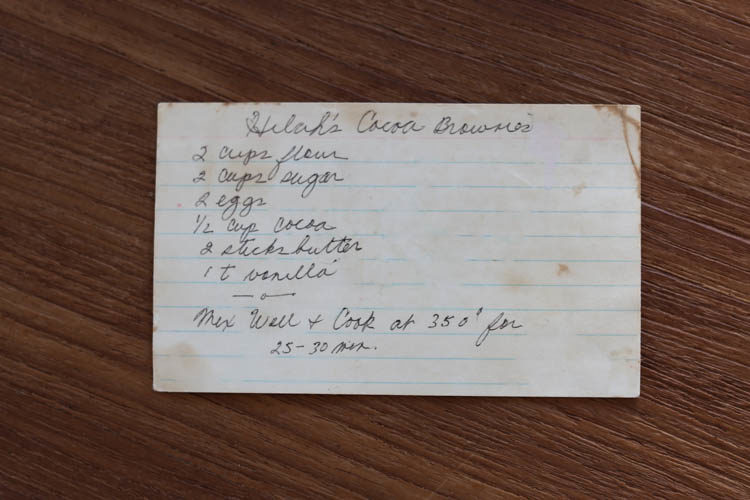 Hilah's Cocoa Brownies
2 cups flour
2 cups sugar
2 eggs
1/2 cup cocoa
2 sticks butter
1 t vanilla
Mix Well + Cook at 350° for
25-30 min.